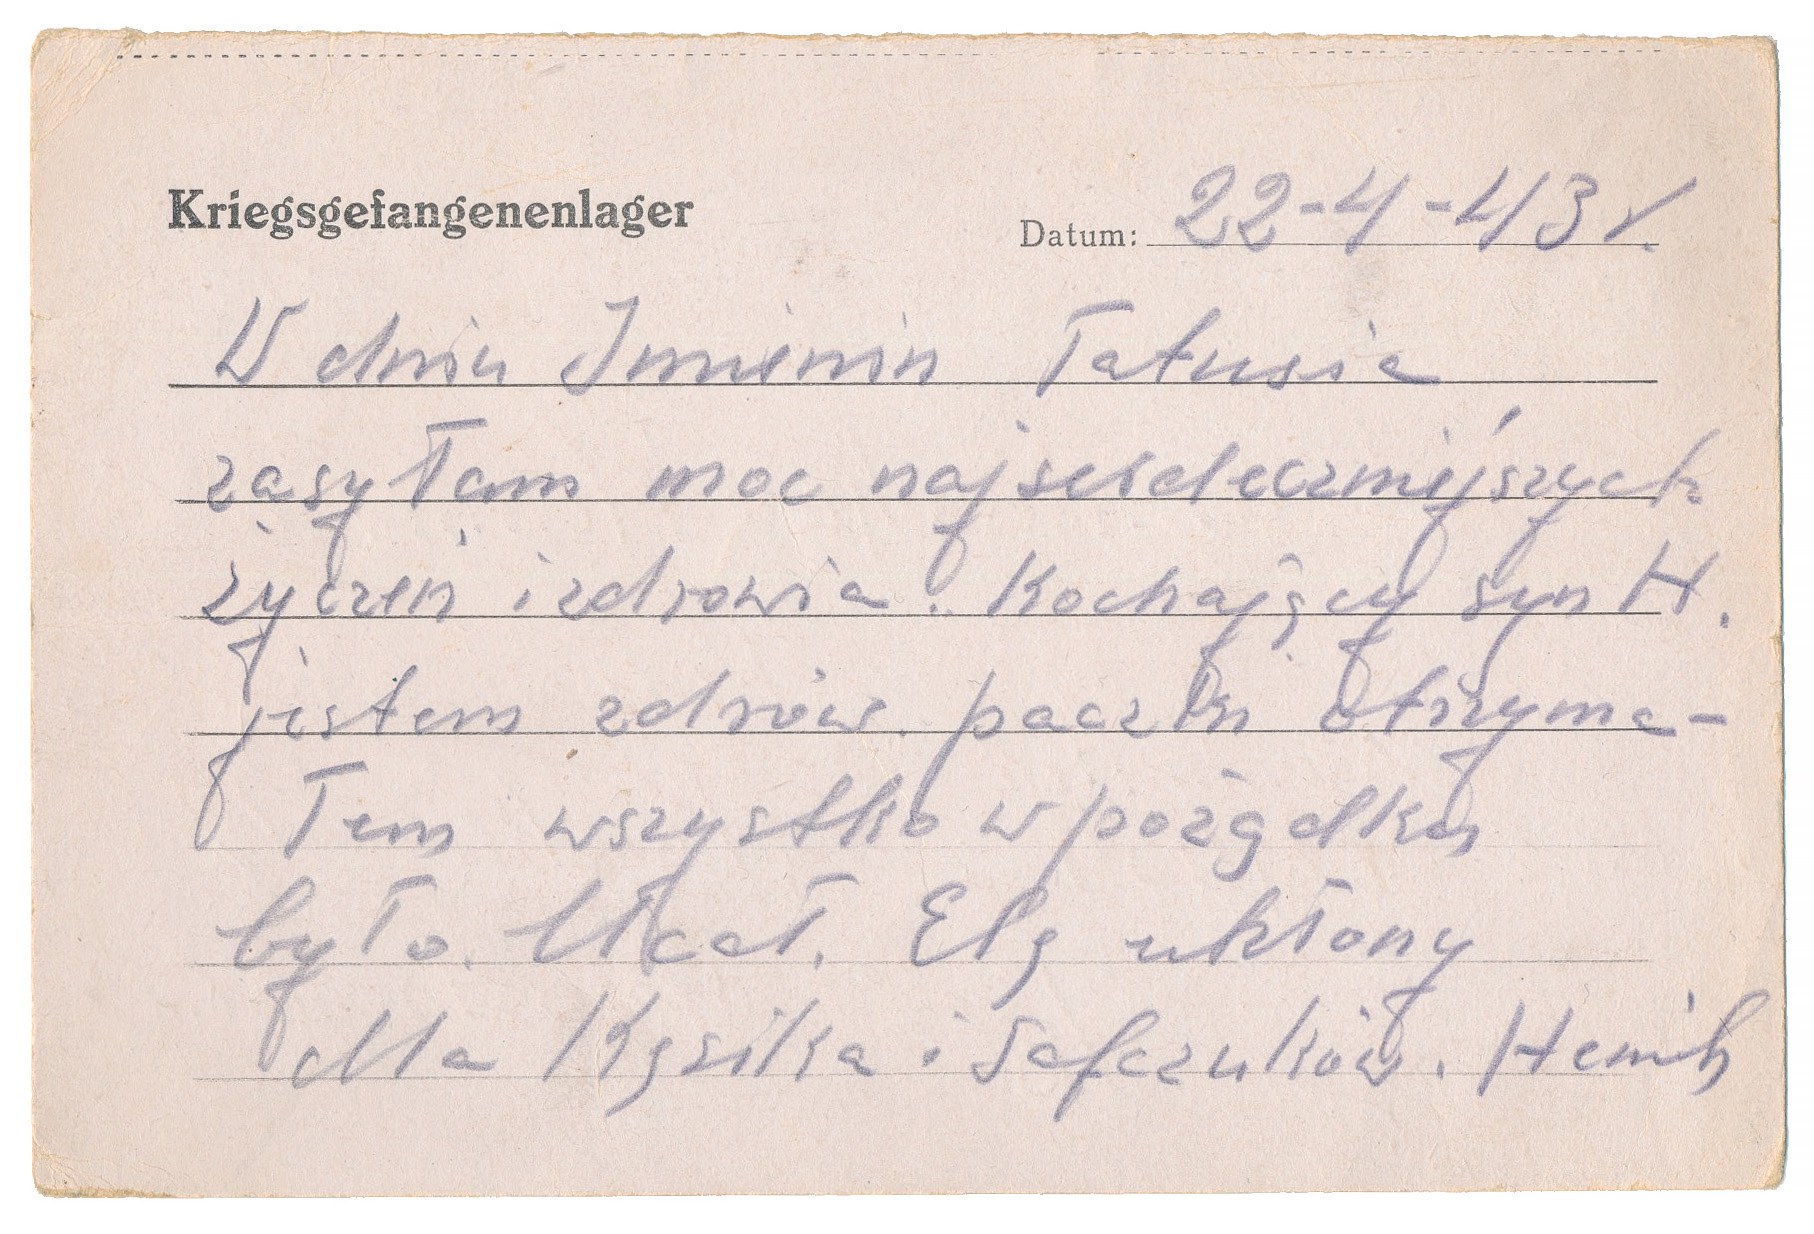 Kriegsgefangenenlager
Datum: 22-4-43 r.
W dniu Imienin Tatusia
zasyłam moc najserdeczniejszych
życzeń i zdrowia. Kochający syn H.
jestem zdrów. paczki otrzyma-
łem wszystko w pożądku
było. Ucał. Elę ukłony
dla Kęsika i Safczuków. Heniek